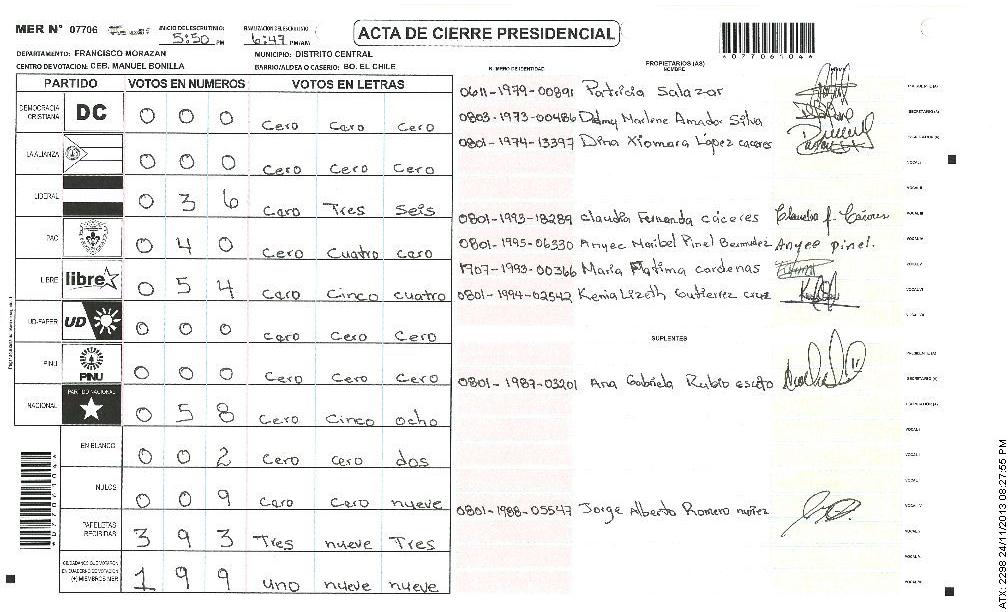 MER N° 07706 INICIO DEL ESCRUTINIO 5:50 PM FINALIZACION DEL ESCRUTINIO 6:47 PM/AM
ACTA DE CIERRE PRESIDENCIAL
*07706104*
DEPARTAMENTO: FRANCISCO MORAZAN MUNICIPIO: DISTRITO CENTRAL
CENTRO DE VOTACION: CEB. MANUEL BONILLA BARRIO/ALDEA O CASERIO: BO. EL CHILE
PARTIDO VOTOS EN NUMEROS VOTOS EN LETRAS
DEMOCRACIA CRISTIANA DC 0 0 0 Cero Cero Cero
LA ALIANZA 0 0 0 Cero Cero Cero
LIBERAL 0 3 6 Cero Tres Seis
PAC 0 4 0 Cero Cuatro Cero
LIBRE libre 0 5 4 Cero Cinco cuatro
UD-FAPER UD 0 0 0 Cero Cero Cero
PINU PINU 0 0 0 Cero Cero Cero
NACIONAL PARTIDO NACIONAL 0 5 8 Cero Cinco ocho
EN BLANCO 0 0 2 Cero Cero dos
NULOS 0 0 9 Cero Cero nueve
PAPELETAS RECIBIDAS 3 9 3 Tres nueve Tres
CIUDADANOS QUE VOTARON EN CUADERNO DE VOTACION (+) MIEMBROS MER 1 9 9 uno nueve nueve
NUMERO DE IDENTIDAD PROPIETARIOS (AS) NOMBRE
0611-1979-00891 Patricia Salazar PRESIDENTE (A)
0803-1973-00486 Delmy Marlene Amador Silva SECRETARIO (A)
0801-1974-13397 Dina Xiomara López caceres ESCRUTADOR (A)
VOCAL I
VOCAL II
0801-1993-18289 Claudia Fernanda cáceres Claudia f. Cáceres VOCAL III
0801-1995-06330 Anyee Maribel Pinel Bermudez Anyee pinel. VOCAL IV
1707-1993-00366 Maria Fatima cardenas VOCAL V
0801-1994-02542 Kenia Lizeth Gutierrez cruz VOCAL VI
VOCAL VII
SUPLENTES
PRESIDENTE (A)
0801-1987-03201 Ana Gabriela Rubio escoto SECRETARIO (A)
ESCRUTADOR (A)
VOCAL I
VOCAL II
VOCAL III
0801-1988-05547 Jorge Alberto Romero nuñez VOCAL IV
VOCAL V
VOCAL VI
VOCAL VII
*07706104*
ATX: 2298 24/11/2013 08:27:55 PM